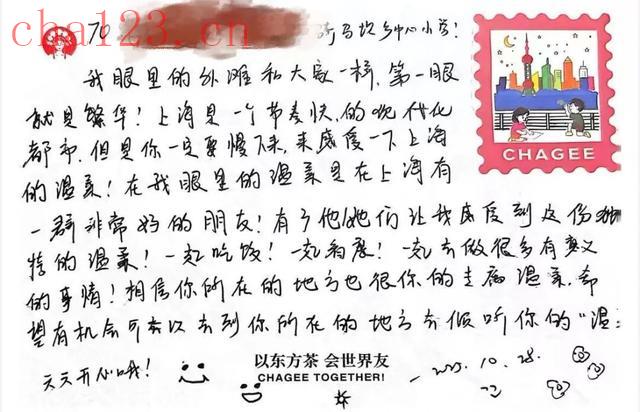 cha123.com.cn
TO 马坎乡中心小学!
我眼里的外滩和大家一样,第一眼
就是繁华!上海是一个节奏快的现代化
都市.但是你一定要慢下来,来感受一下上海
的温柔!在我眼里的温柔是在上海有
一群非常好的朋友!有了他/她们让我感受到这份独
特的温柔!一起吃饭!一起看展!一起去做很多有意义
的事情!相信你所在的地方也很你的专属温柔,希
望有机会可以去到你所在的地方去倾听你的“温
天天开心哦!
CHAGEE
以东方茶 会世界友
CHAGEE TOGETHER!
2023.10.28.